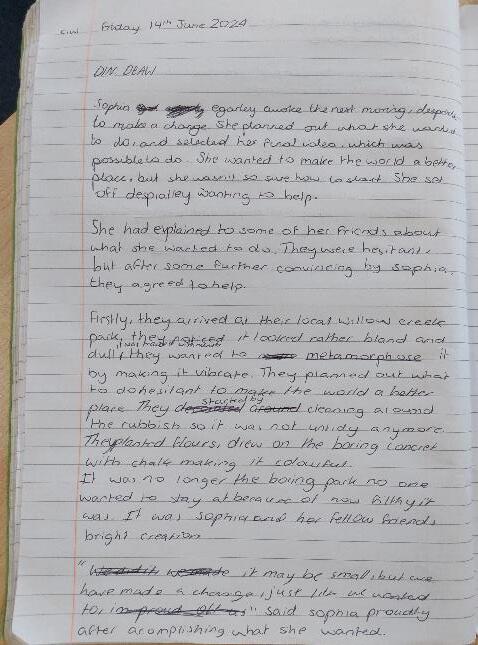 C/W Friday 14th June 2024
Sophia egarley awoke the next moring, desperate
to make a change. She planned out what she wanted
to do, and selected her final idea, which was
possible to do. She wanted to make the world a better
place, but she wasn't so sure how to start. She set
off despialley wanting to help.
She had explained to some of her friends about
what she wanted to do. They were hesitant,
but after some further convincing by sophia,
they agreed to help.
Firstly, they arrived at their local willow creek
park, they noticed it looked rather bland and
it was
dull, they wanted to metamorphose it
by making it vibrate. They planned out what
to do hesitant to make the world a better
started by
place They cleaning around
the rubbish so it was not untidy anymore.
They planted flours, drew on the boring concret
with chalk making it colourful.
It was no longer the boring park no one
wanted to stay at because of how filthy it
was. It was Sophia and her fellow friends
bright creation
" it may be small, but we
have made a change, just like we wanted
to" said sophia proudly
after acomplishing what she wanted.